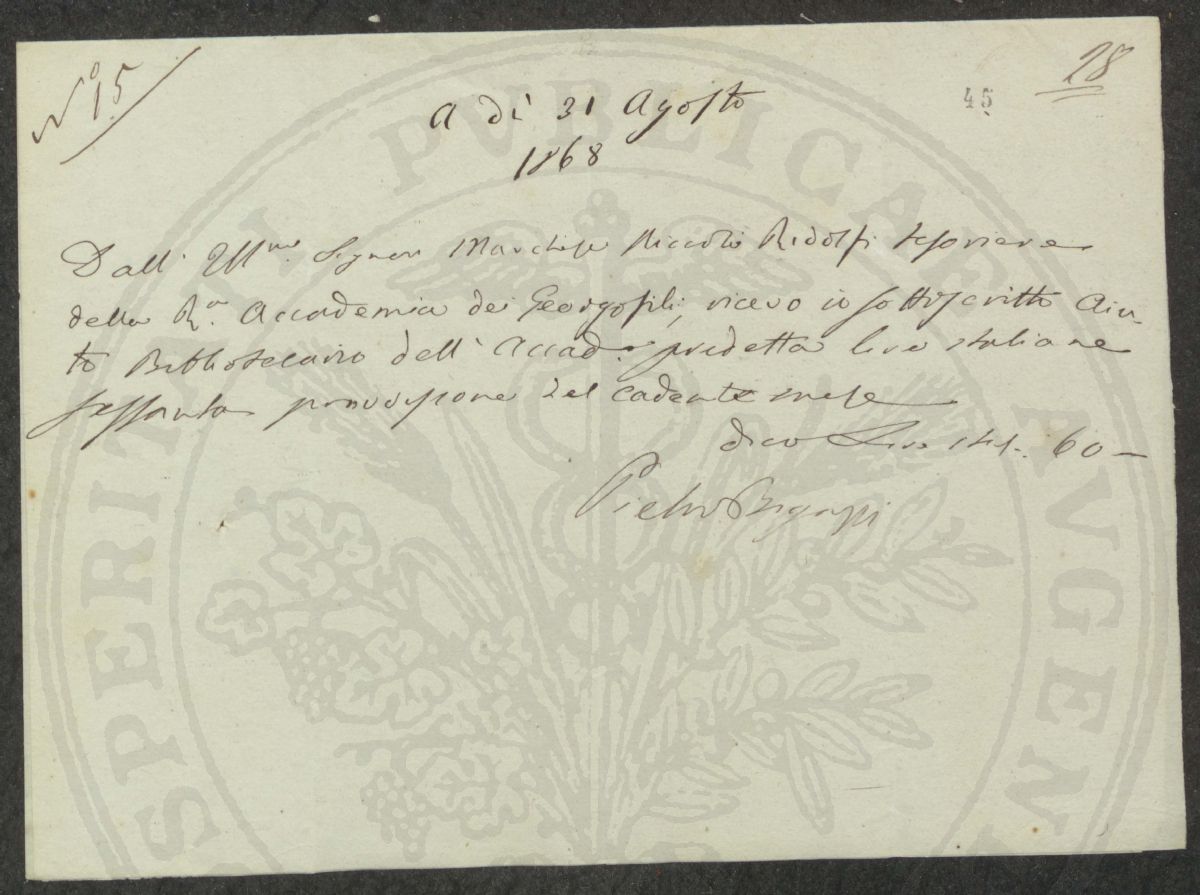 N° 15
28
45
A dì 31 Agosto
1868
Dall' Illmo. Signor Marchese Niccolò Ridolfi Tesoriere
della R.a Accademia dei Georgofili, ricevo io sottoscritto Aiu-
to Bibliotecario dell' Accad.a predetta lire italiane
sessanta provvisione del cadente mese
dico Lire ital. 60 —
Pietro Bigazzi
PROSPERITATI PVBLICAE AVGENDAE